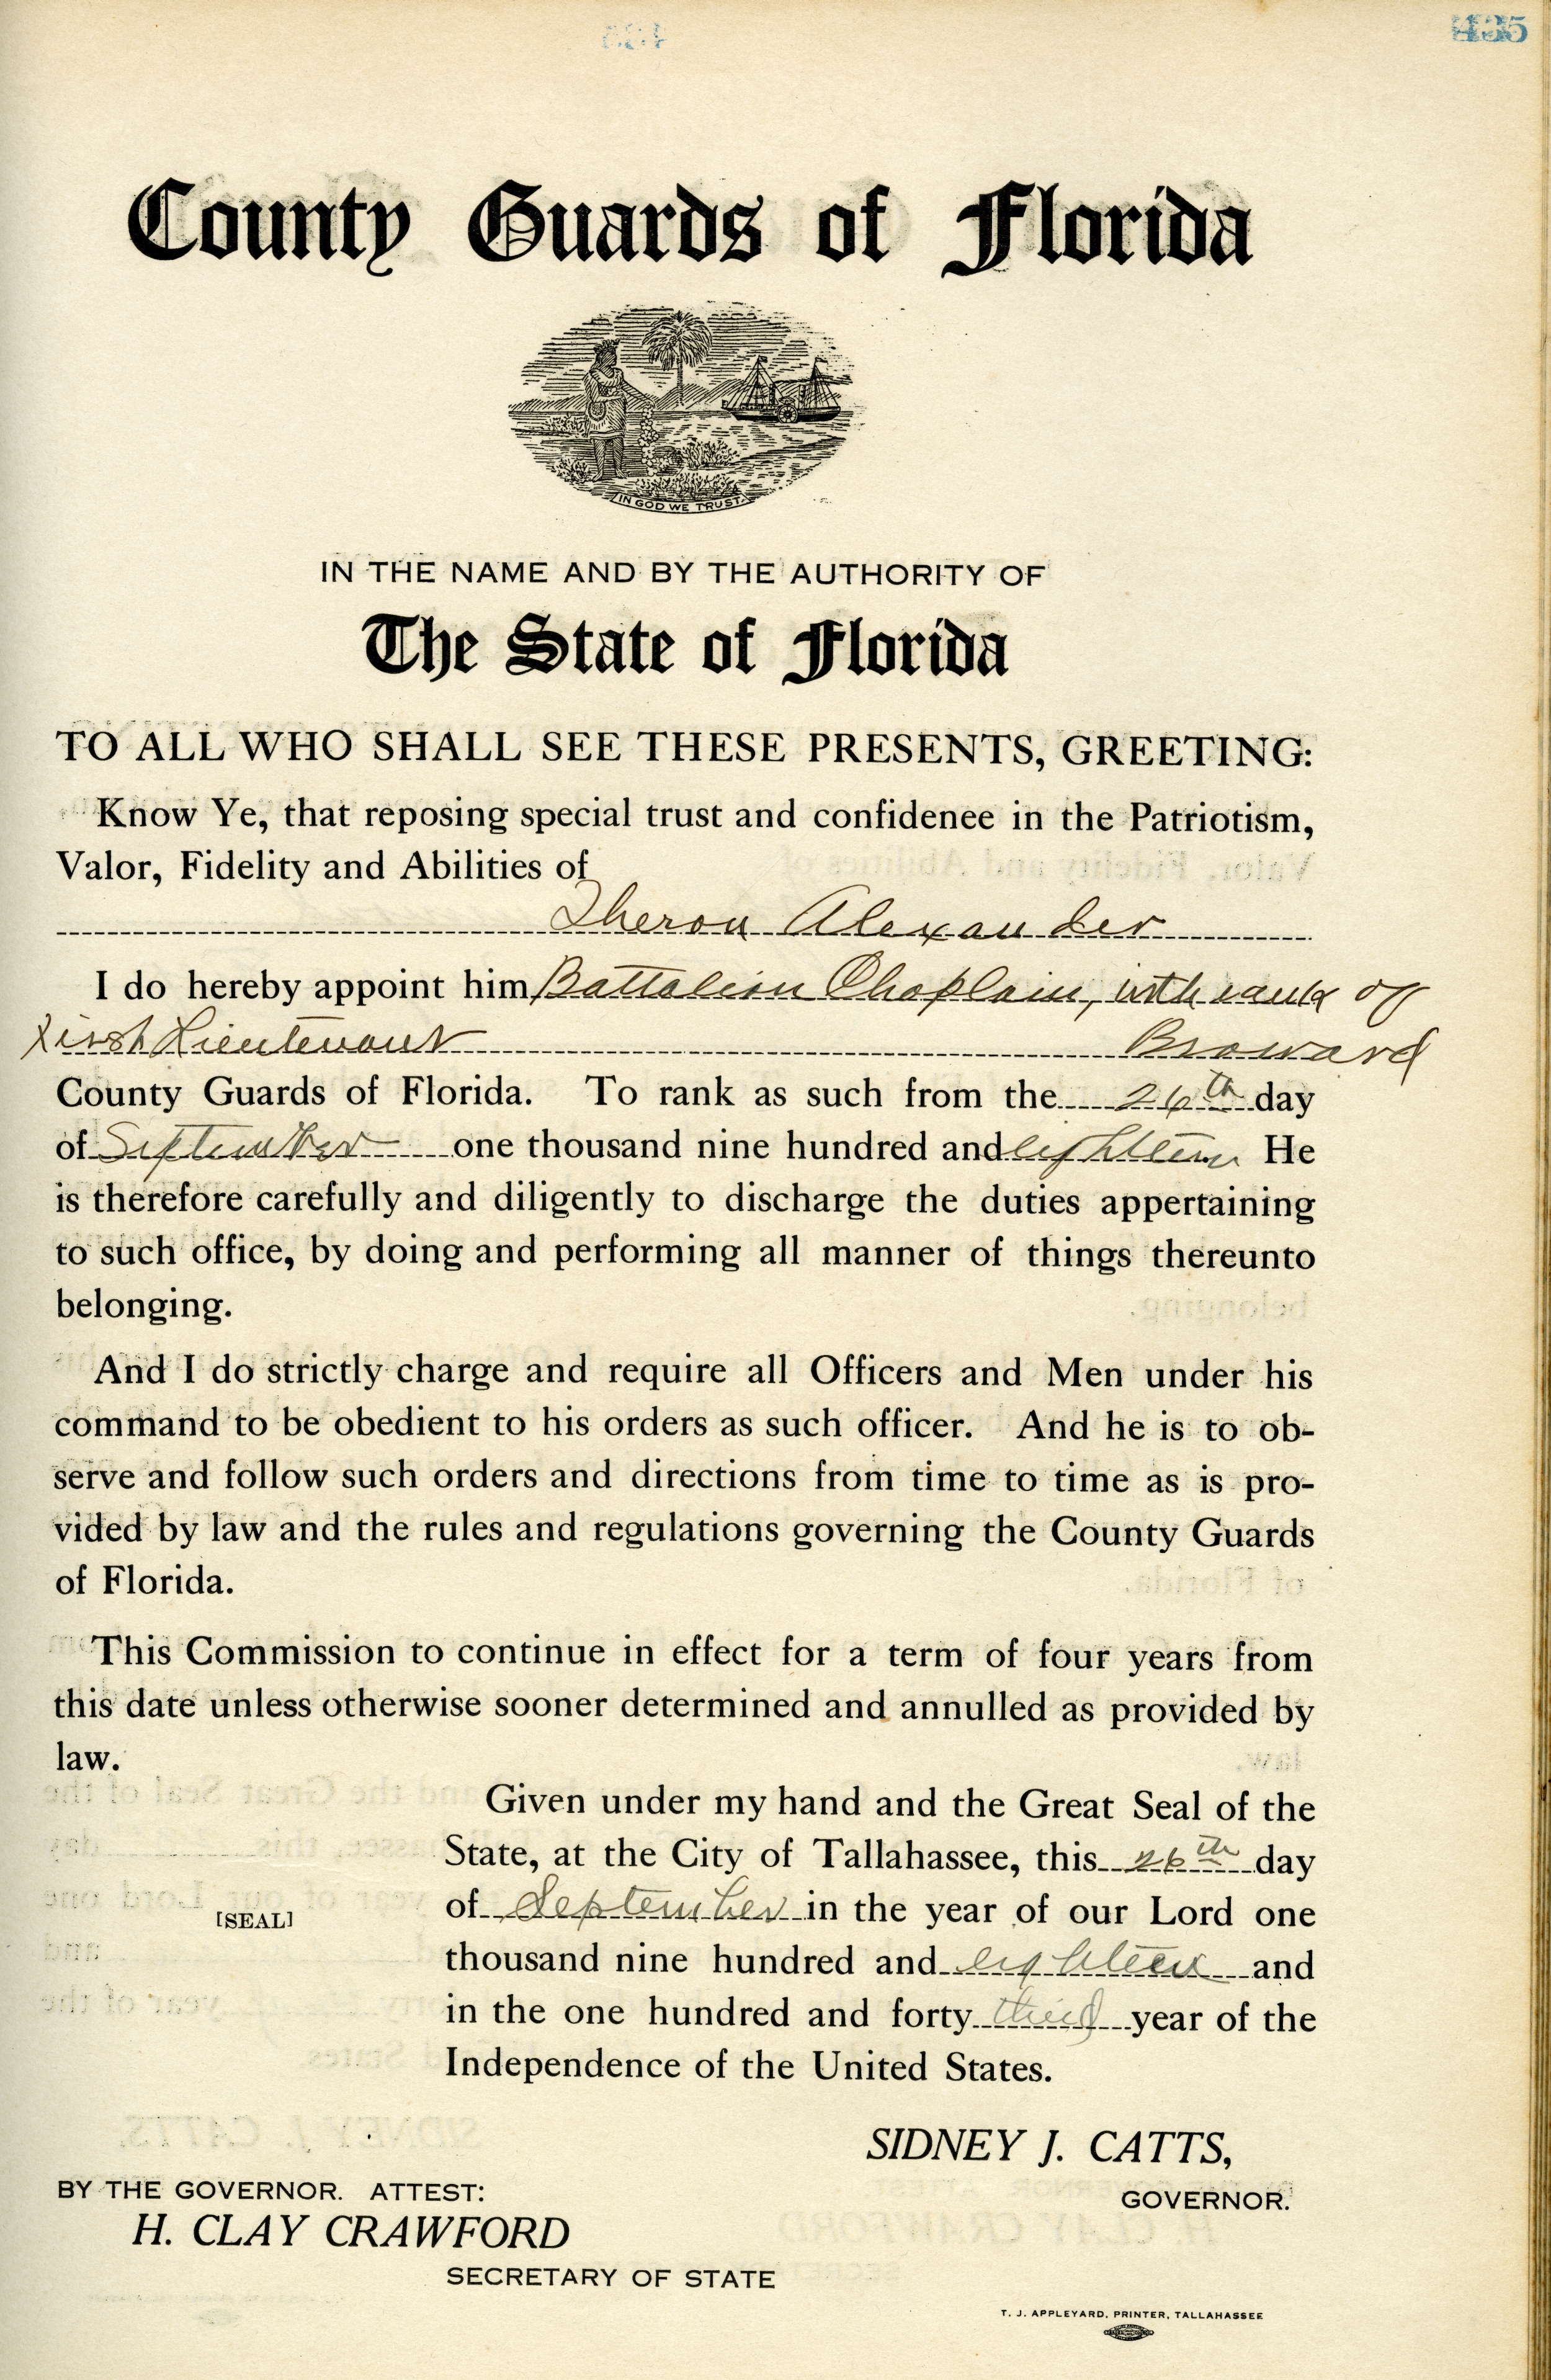 435
County Guards of Florida
IN GOD WE TRUST
IN THE NAME AND BY THE AUTHORITY OF
The State of Florida
TO ALL WHO SHALL SEE THESE PRESENTS, GREETING:
Know Ye, that reposing special trust and confidenee in the Patriotism,
Valor, Fidelity and Abilities of
Theron Alexander
I do hereby appoint him Battalion Chaplain, with rank of
First Lieutenant Broward
County Guards of Florida. To rank as such from the 26th day
of September one thousand nine hundred and eighteen He
is therefore carefully and diligently to discharge the duties appertaining
to such office, by doing and performing all manner of things thereunto
belonging.
And I do strictly charge and require all Officers and Men under his
command to be obedient to his orders as such officer. And he is to ob-
serve and follow such orders and directions from time to time as is pro-
vided by law and the rules and regulations governing the County Guards
of Florida.
This Commission to continue in effect for a term of four years from
this date unless otherwise sooner determined and annulled as provided by
law.
Given under my hand and the Great Seal of the
State, at the City of Tallahassee, this 26th day
of September in the year of our Lord one
[SEAL]
thousand nine hundred and eighteen and
in the one hundred and forty third year of the
Independence of the United States.
SIDNEY J. CATTS,
GOVERNOR.
BY THE GOVERNOR. ATTEST:
H. CLAY CRAWFORD
SECRETARY OF STATE
T. J. APPLEYARD, PRINTER, TALLAHASSEE